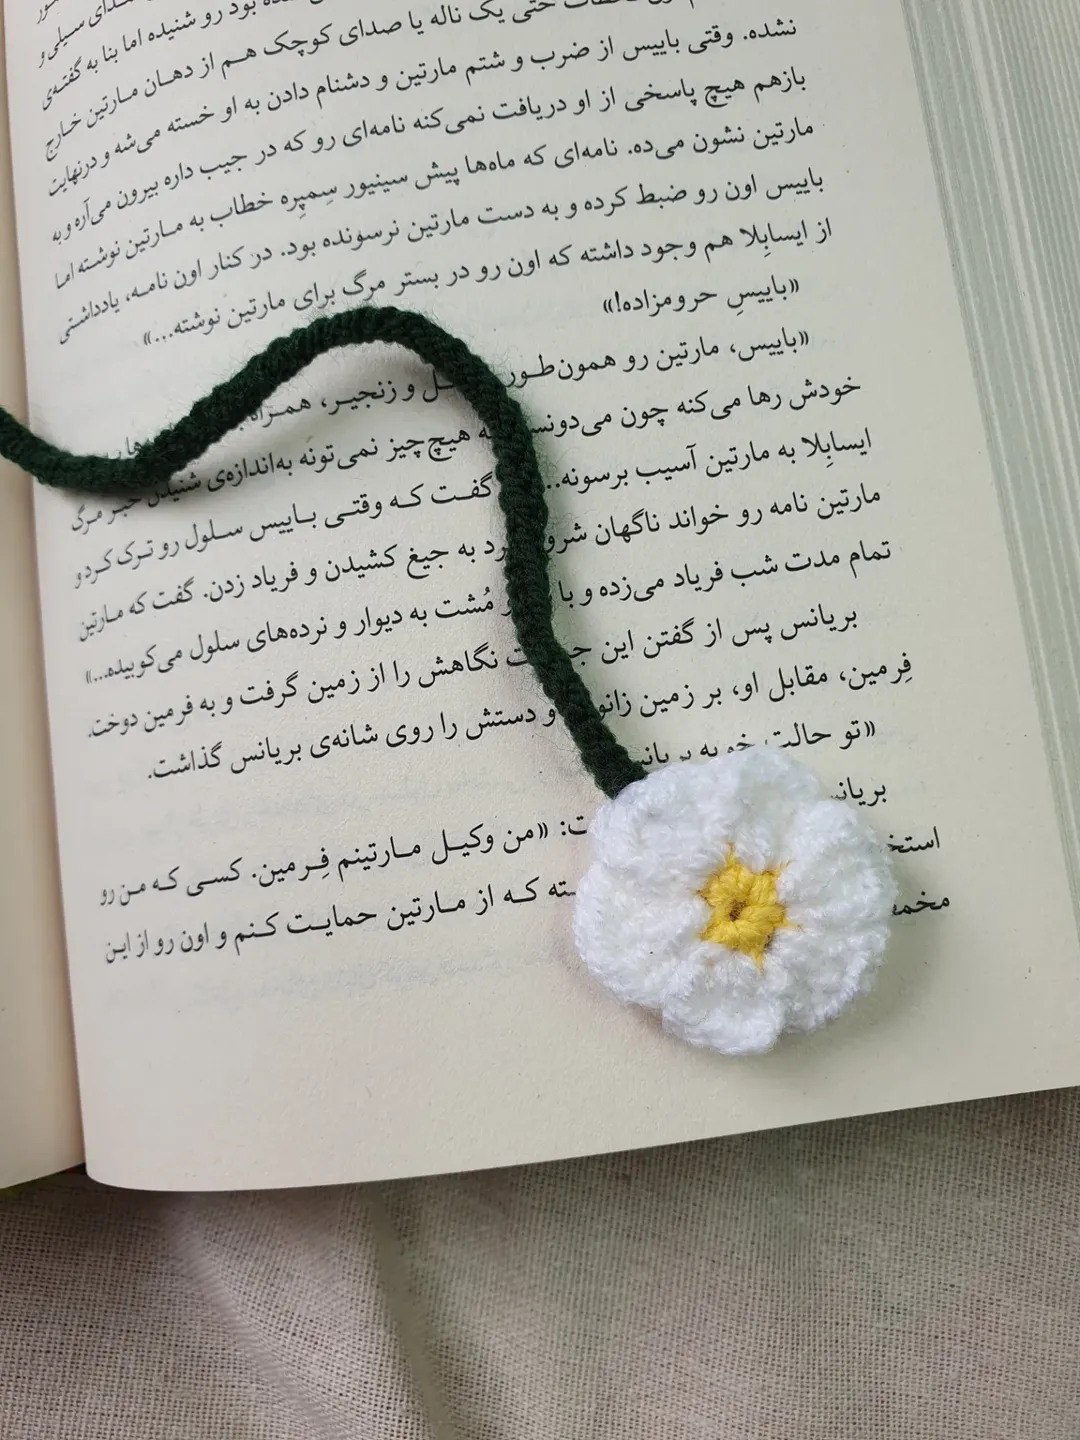 بود رو شنیده اما بنا به گفته‌ی
حتی یک ناله یا صدای کوچک هم از دهان مارتین خارج
نشده. وقتی باییس از ضرب و شتم مارتین و دشنام دادن به او خسته می‌شه و درنهایت
بازهم هیچ پاسخی از او دریافت نمی‌کنه نامه‌ای رو که در جیب داره بیرون می‌آره و به
مارتین نشون می‌ده. نامه‌ای که ماه‌ها پیش سینیور سِمپِره خطاب به مارتین نوشته اما
باییس اون رو ضبط کرده و به دست مارتین نرسونده بود. در کنار اون نامه، یادداشتی
از ایسابِلا هم وجود داشته که اون رو در بستر مرگ برای مارتین نوشته...»
«باییسِ حرومزاده!»
«باییس، مارتین رو همون‌طور و زنجیر،
خودش رها می‌کنه چون می‌دونسته هیچ‌چیز نمی‌تونه به‌اندازه‌ی شنیدن خبر مرگ
ایسابِلا به مارتین آسیب برسونه... گفت که وقتی باییس سلول رو ترک کرد و
مارتین نامه رو خواند ناگهان شروع کرد به جیغ کشیدن و فریاد زدن. گفت که مارتین
تمام مدت شب فریاد می‌زده و با مُشت به دیوار و نرده‌های سلول می‌کوبیده...»
بریانس پس از گفتن این نگاهش را از زمین گرفت و به فرمین دوخت.
فِرمین، مقابل او، بر زمین زانو و دستش را روی شانه‌ی بریانس گذاشت.
«تو حالت خوبه بریانس
بریانس
«من وکیل مارتینم فِرمین. کسی که من رو
که از مارتین حمایت کنم و اون رو از این